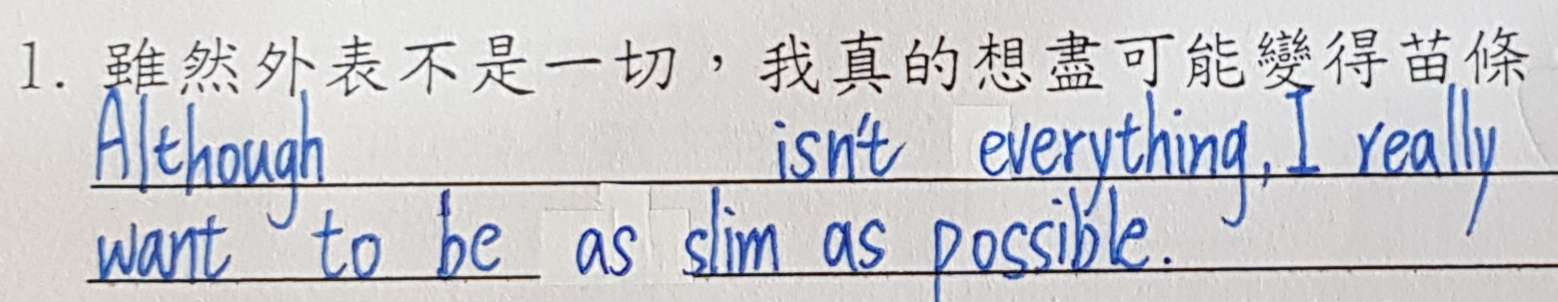 1. 雖然外表不是一切，我真的想盡可能變得苗條
Although isn't everything, I really
want to be as slim as possible.